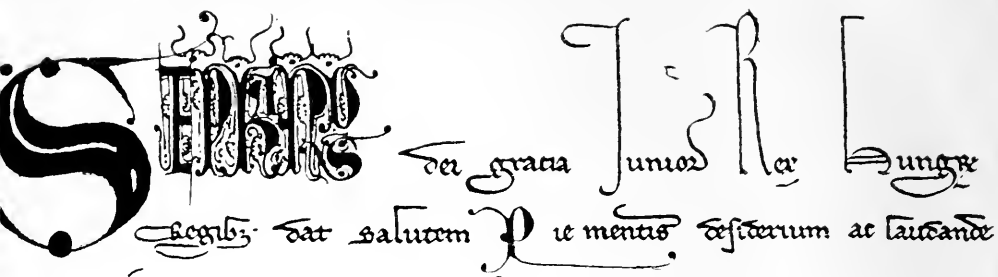 STEPHANUS dei gratia Junior Rex Hungarie
Regibꝫ· dat salutem Pie mentis desiderium ac laudande